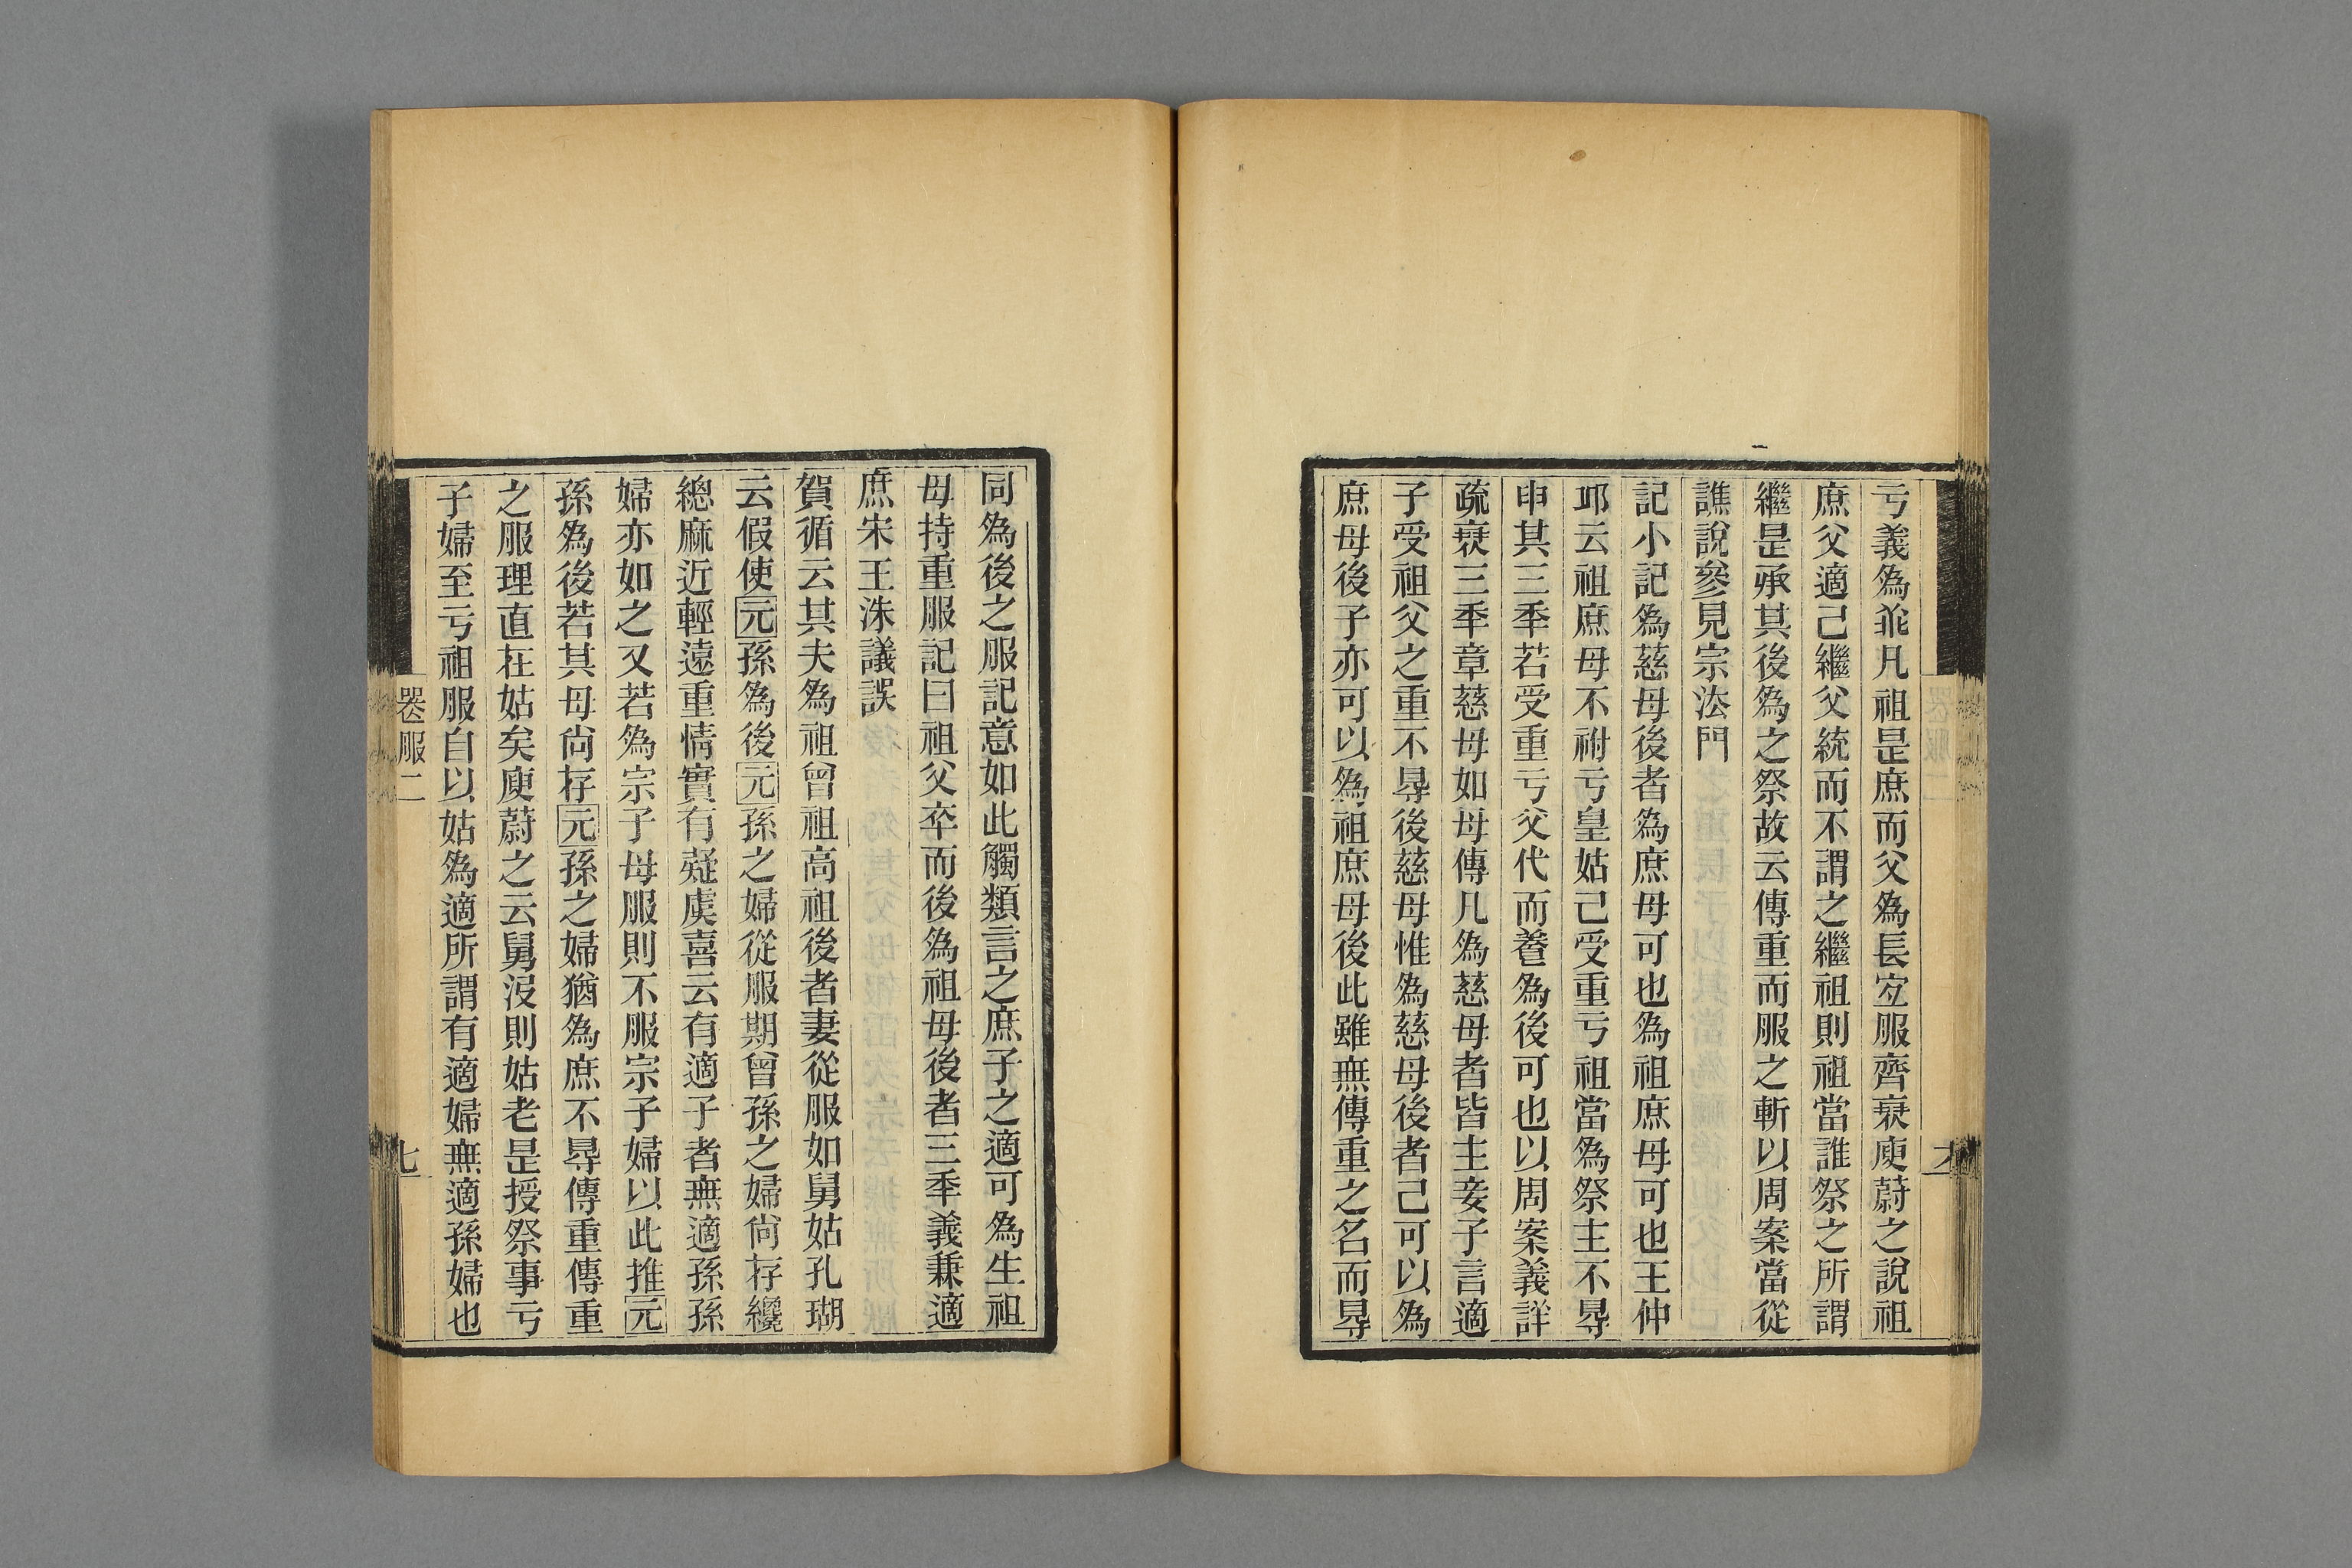 亏義為乖凡祖是庶而父為長宐服齊衰庾蔚之說祖
庶父適己繼父統而不謂之繼祖則祖當誰祭之所謂
繼是承其後為之祭故云傳重而服之斬以周案當從
譙說參見宗法門
記小記為慈母後者為庶母可也為祖庶母可也王仲
邱云祖庶母不祔亏皇姑己受重亏祖當為祭主不㝵
申其三秊若受重亏父代而養為後可也以周案義詳
疏衰三秊章慈母如母傳凡為慈母者皆主妾子言適
子受祖父之重不㝵後慈母惟為慈母後者己可以為
庶母後子亦可以為祖庶母後此雖無傳重之名而㝵
同為後之服記意如此觸類言之庶子之適可為生祖
母持重服記曰祖父卒而後為祖母後者三秊義兼適
庶宋王洙議誤
賀循云其夫為祖曾祖高祖後者妻從服如舅姑孔瑚
云假使元孫為後元孫之婦從服期曾孫之婦尙存纔
緦麻近輕遠重情實有疑虞喜云有適子者無適孫孫
婦亦如之又若為宗子母服則不服宗子婦以此推元
孫為後若其母尙存元孫之婦猶為庶不㝵傳重傳重
之服理直在姑矣庾蔚之云舅沒則姑老是授祭事亏
子婦至亏祖服自以姑為適所謂有適婦無適孫婦也
喪服二
七